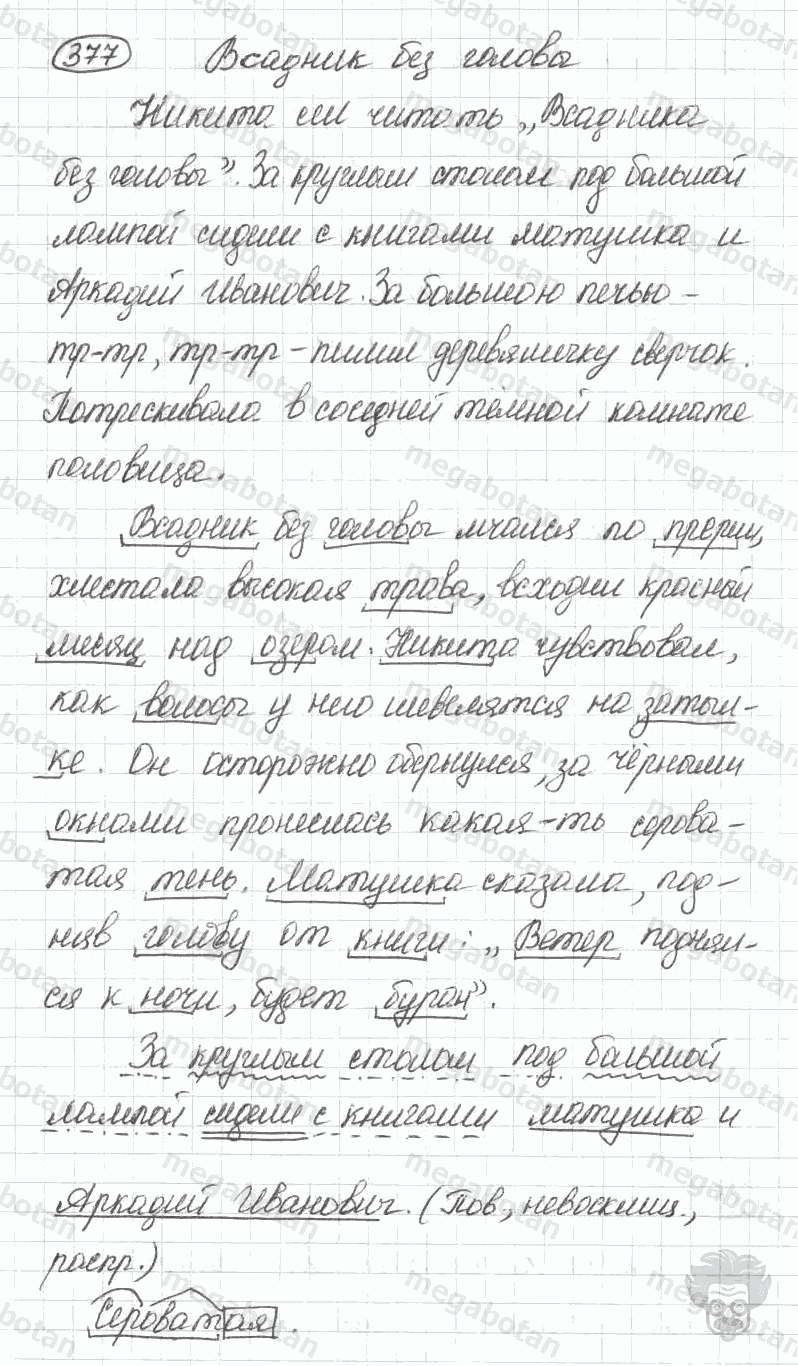 377 Всадник без головы
Никита сел читать „Всадника
без головы”. За круглым столом под большой
лампой сидели с книгами матушка и
Аркадий Иванович. За большою печью –
тр-тр, тр-тр – пилил деревяшечку сверчок.
Потрескивала в соседней тёмной комнате
половица.
Всадник без головы мчался по прерии,
хлестала высокая трава, всходил красный
месяц над озером. Никита чувствовал,
как волосы у него шевелятся на затыл-
ке. Он осторожно обернулся, за чёрными
окнами пронеслась какая-то серова-
тая тень. Матушка сказала, под-
няв голову от книги: „Ветер поднял-
ся к ночи, будет буран”.
За круглым столом под большой
лампой сидели с книгами матушка и
Аркадий Иванович. (Пов., невосклиц.,
распр.)
Сероватая.
megabotan